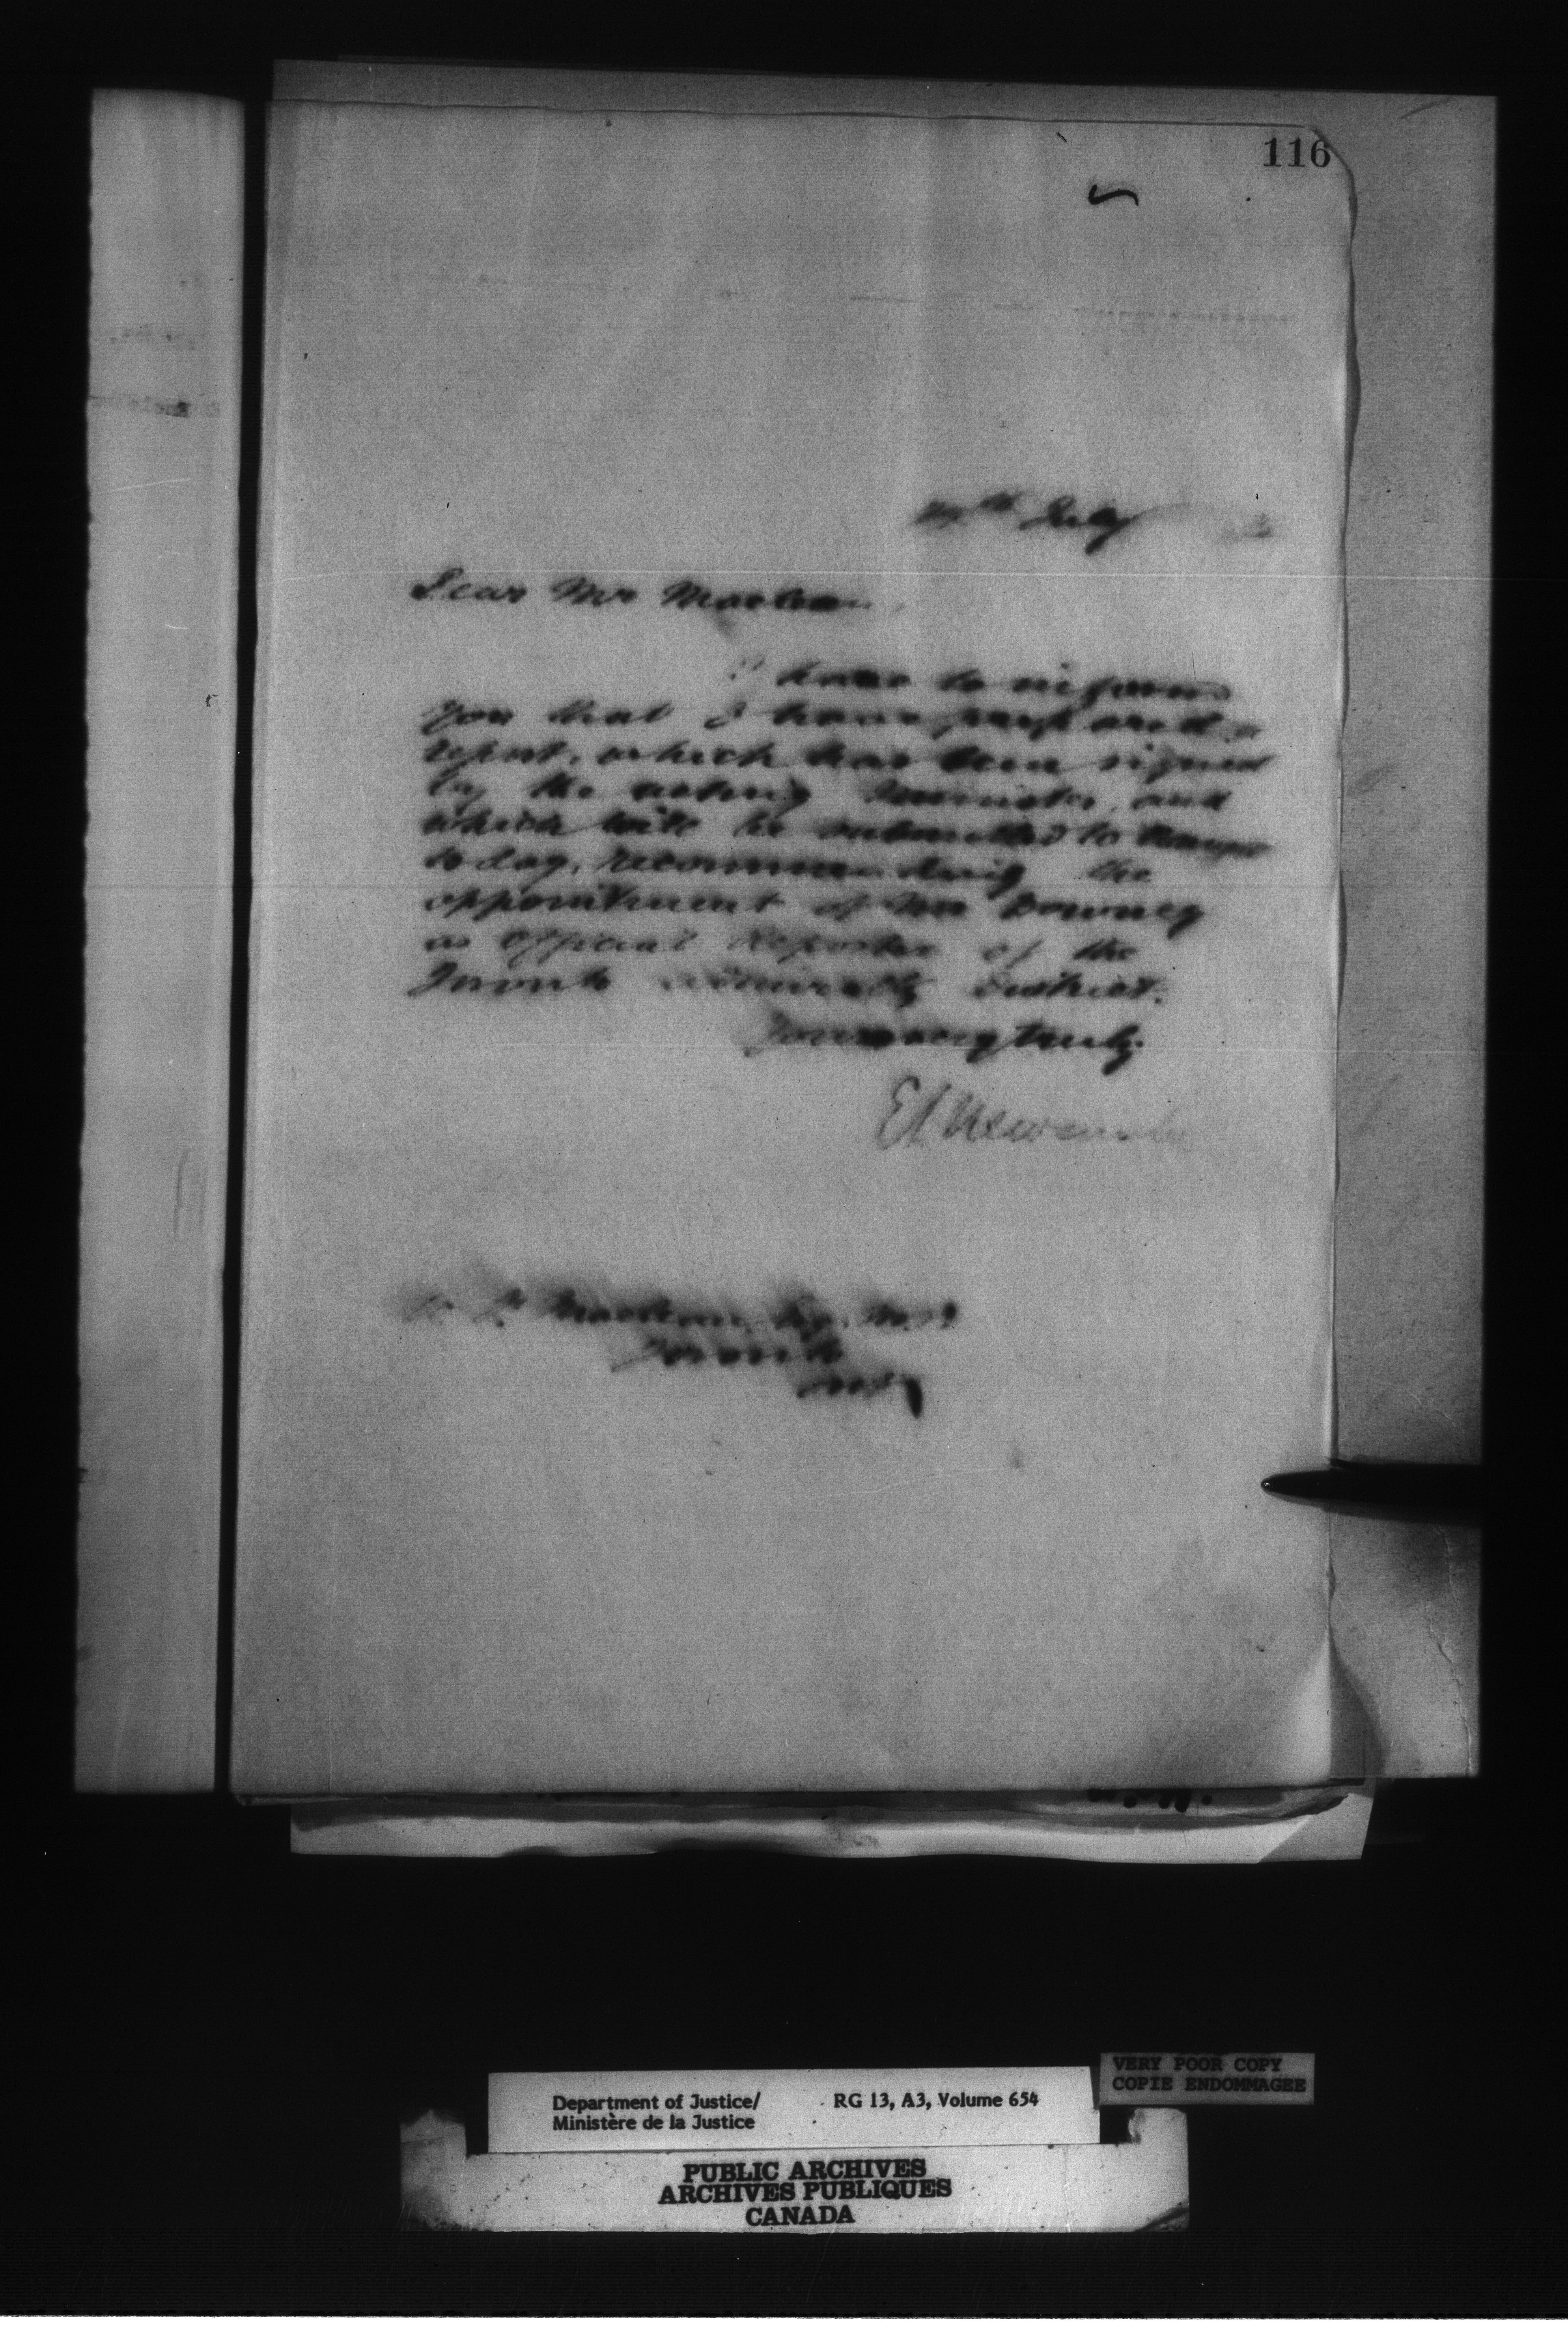 116
July
Dear Mr Maclean,
I have to inform
you that I have prepared a
report, which has been signed
by the acting Minister, and
which will be submitted to
today, recommending the
appointment of Mr Downey
as Official Reporter of the
Toronto Admiralty District.
Yours very truly,
E L Newcombe
Maclean, Esq. M.P.
Toronto
Ont
VERY POOR COPY
COPIE ENDOMMAGEE
Department of Justice/ RG 13, A3, Volume 654
Ministère de la Justice
PUBLIC ARCHIVES
ARCHIVES PUBLIQUES
CANADA